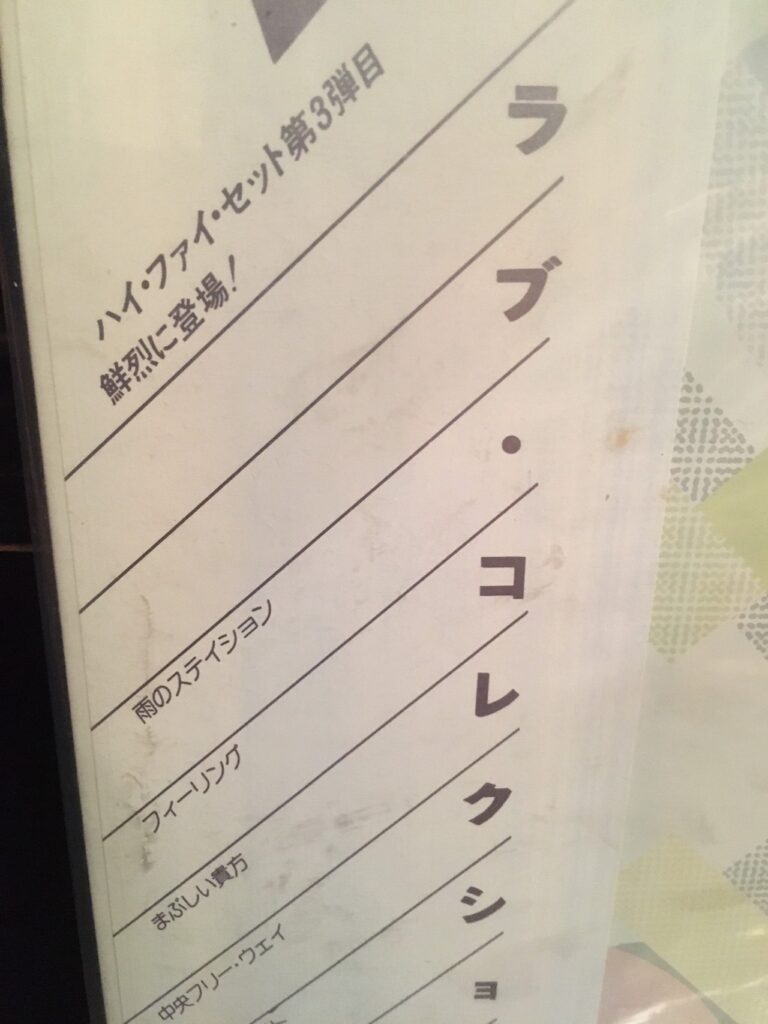 ハイ・ファイ・セット第3弾目
鮮烈に登場!
ラブ・コレクショ
雨のステイション
フィーリング
まぶしい貴方
中央フリー・ウェイ